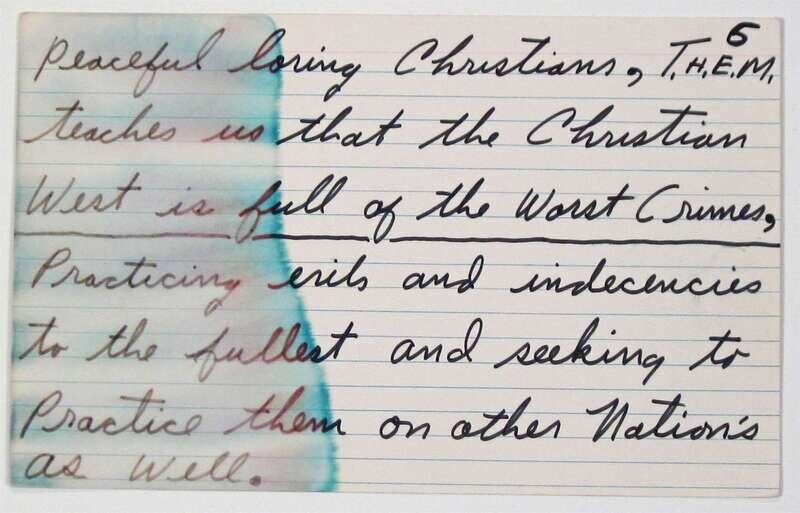 6
Peaceful loving Christians, T.H.E.M.
teaches us that the Christian
West is full of the Worst Crimes,
Practicing evils and indecencies
to the fullest and seeking to
Practice them on other Nation's
as well.